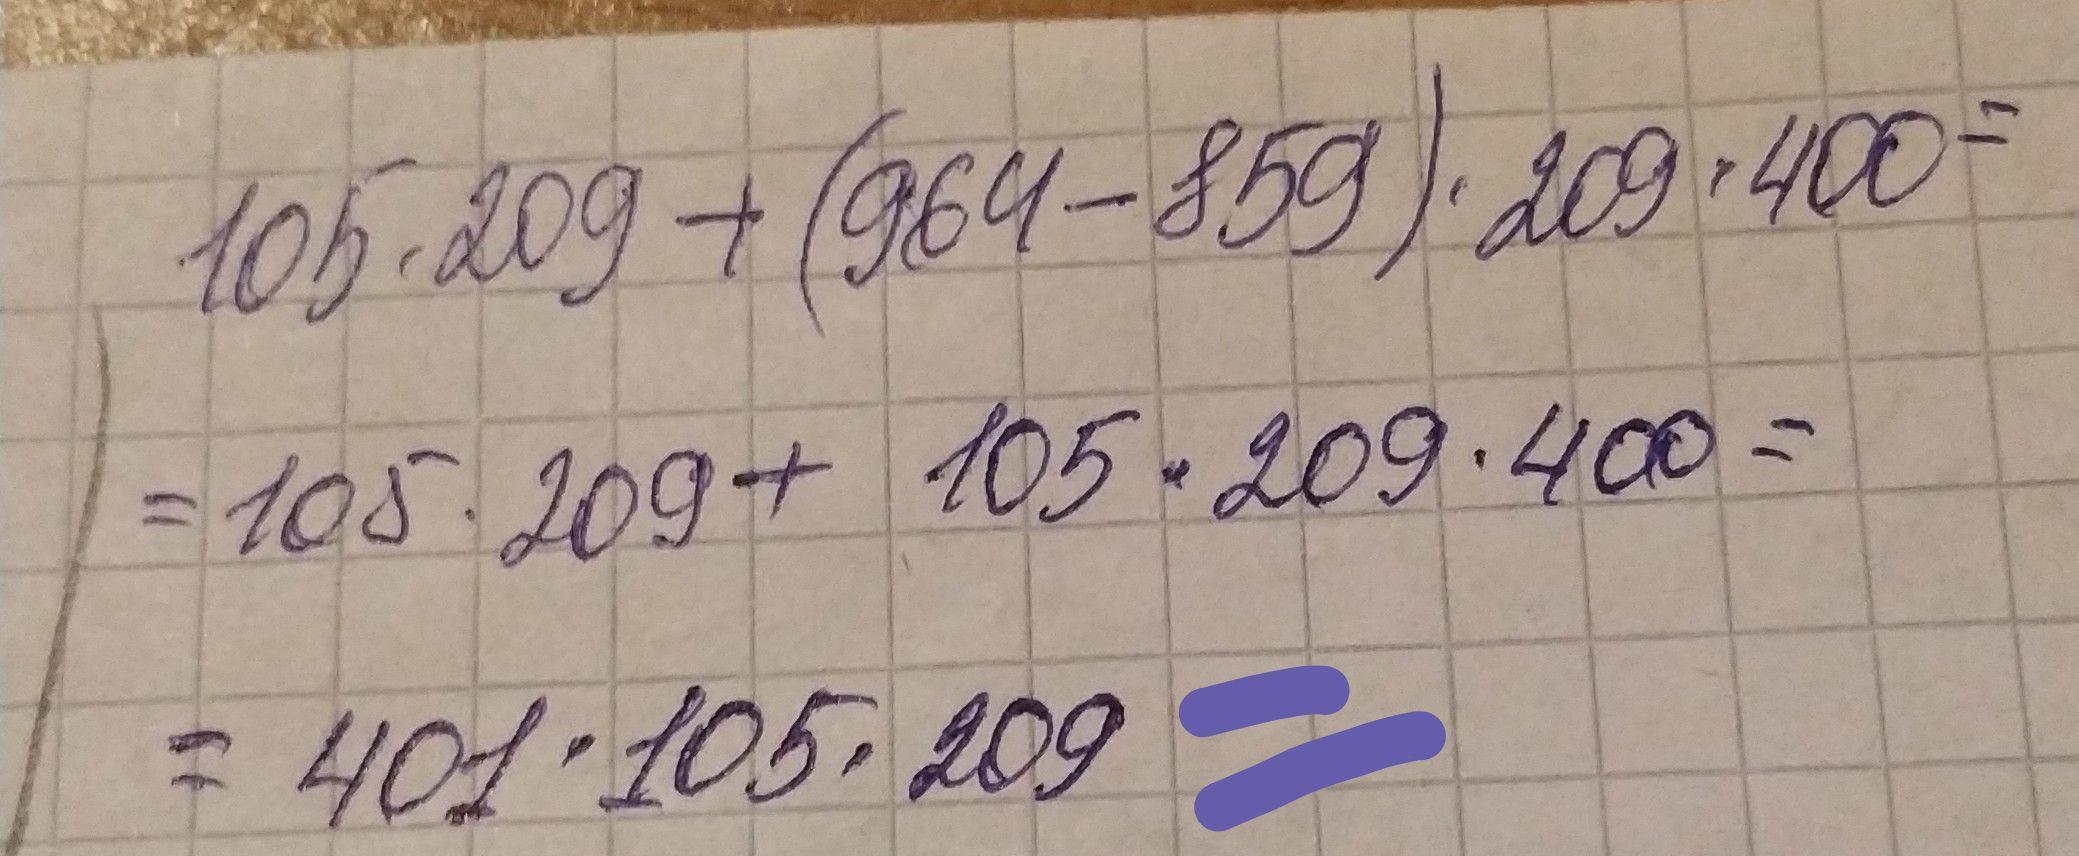 105·209+(964-859)·209·400=
=105·209+ 105·209·400=
=401·105·209 =